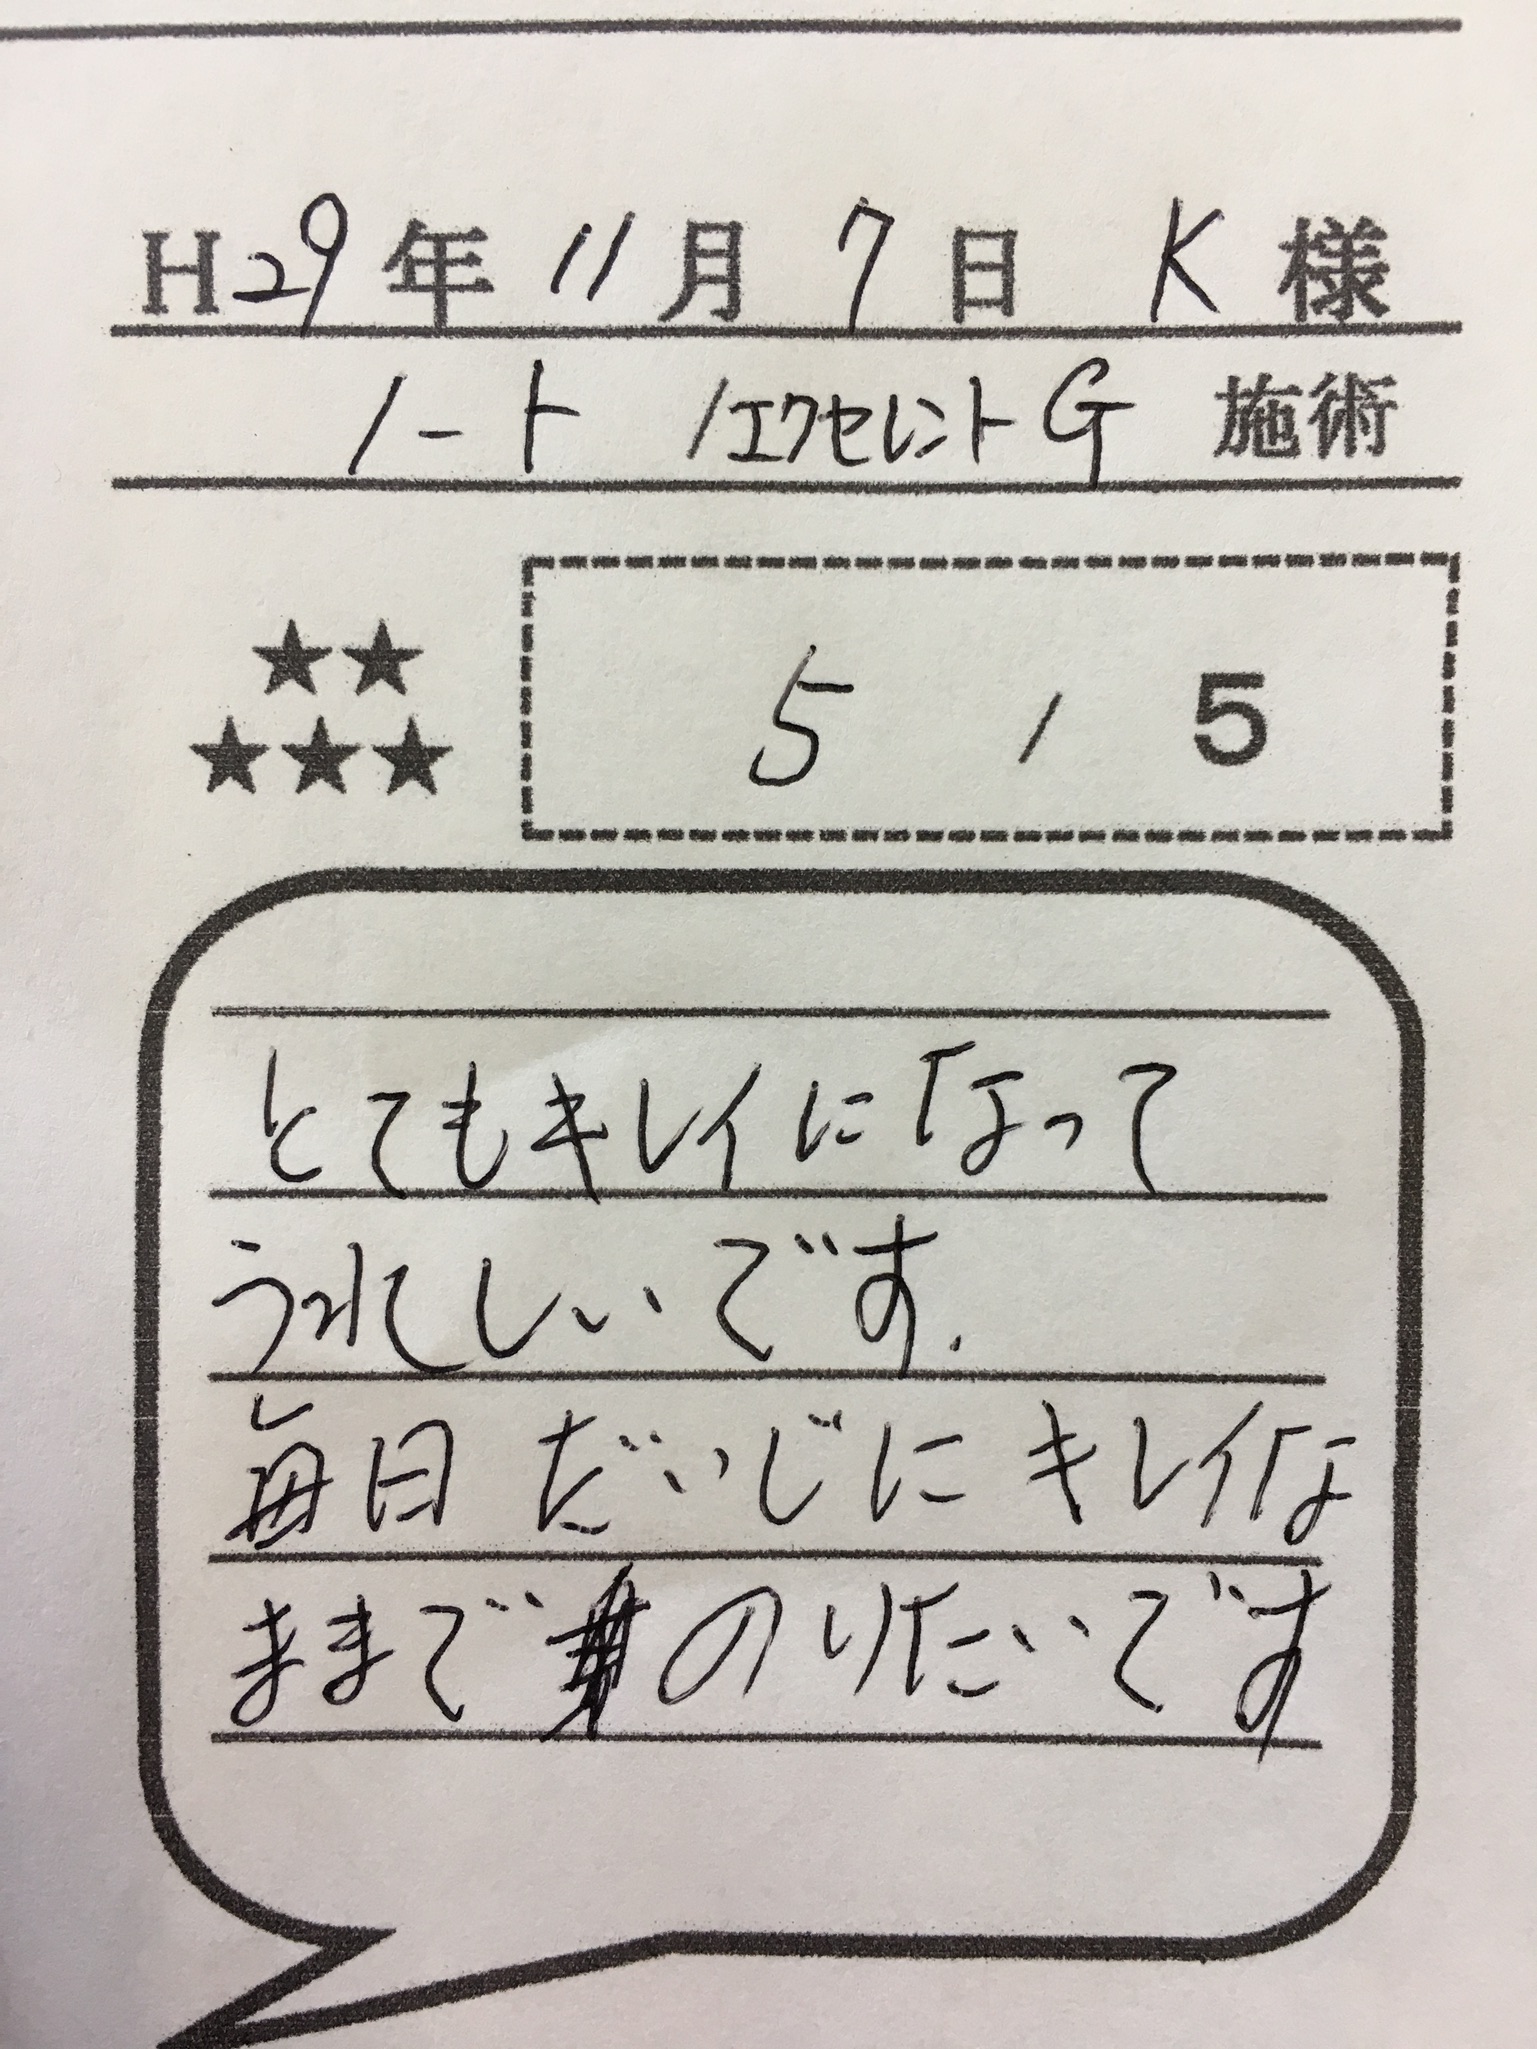 H29年 11月 7日 K 様
ノート /エクセレントG 施術
★★
★★★
5 / 5
とてもキレイになって
うれしいです.
毎日 だいじに キレイな
ままで のりたいです